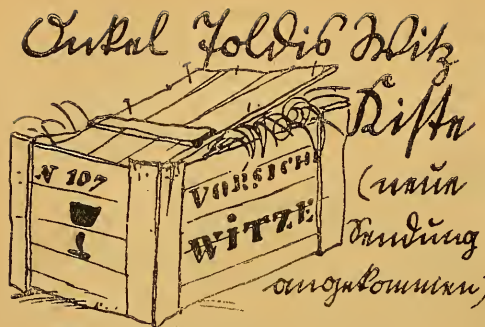 Onkel Poldis Witz
Kiste
(neue
Sendung
angekommen)
N 107
VORSICH
WITZE